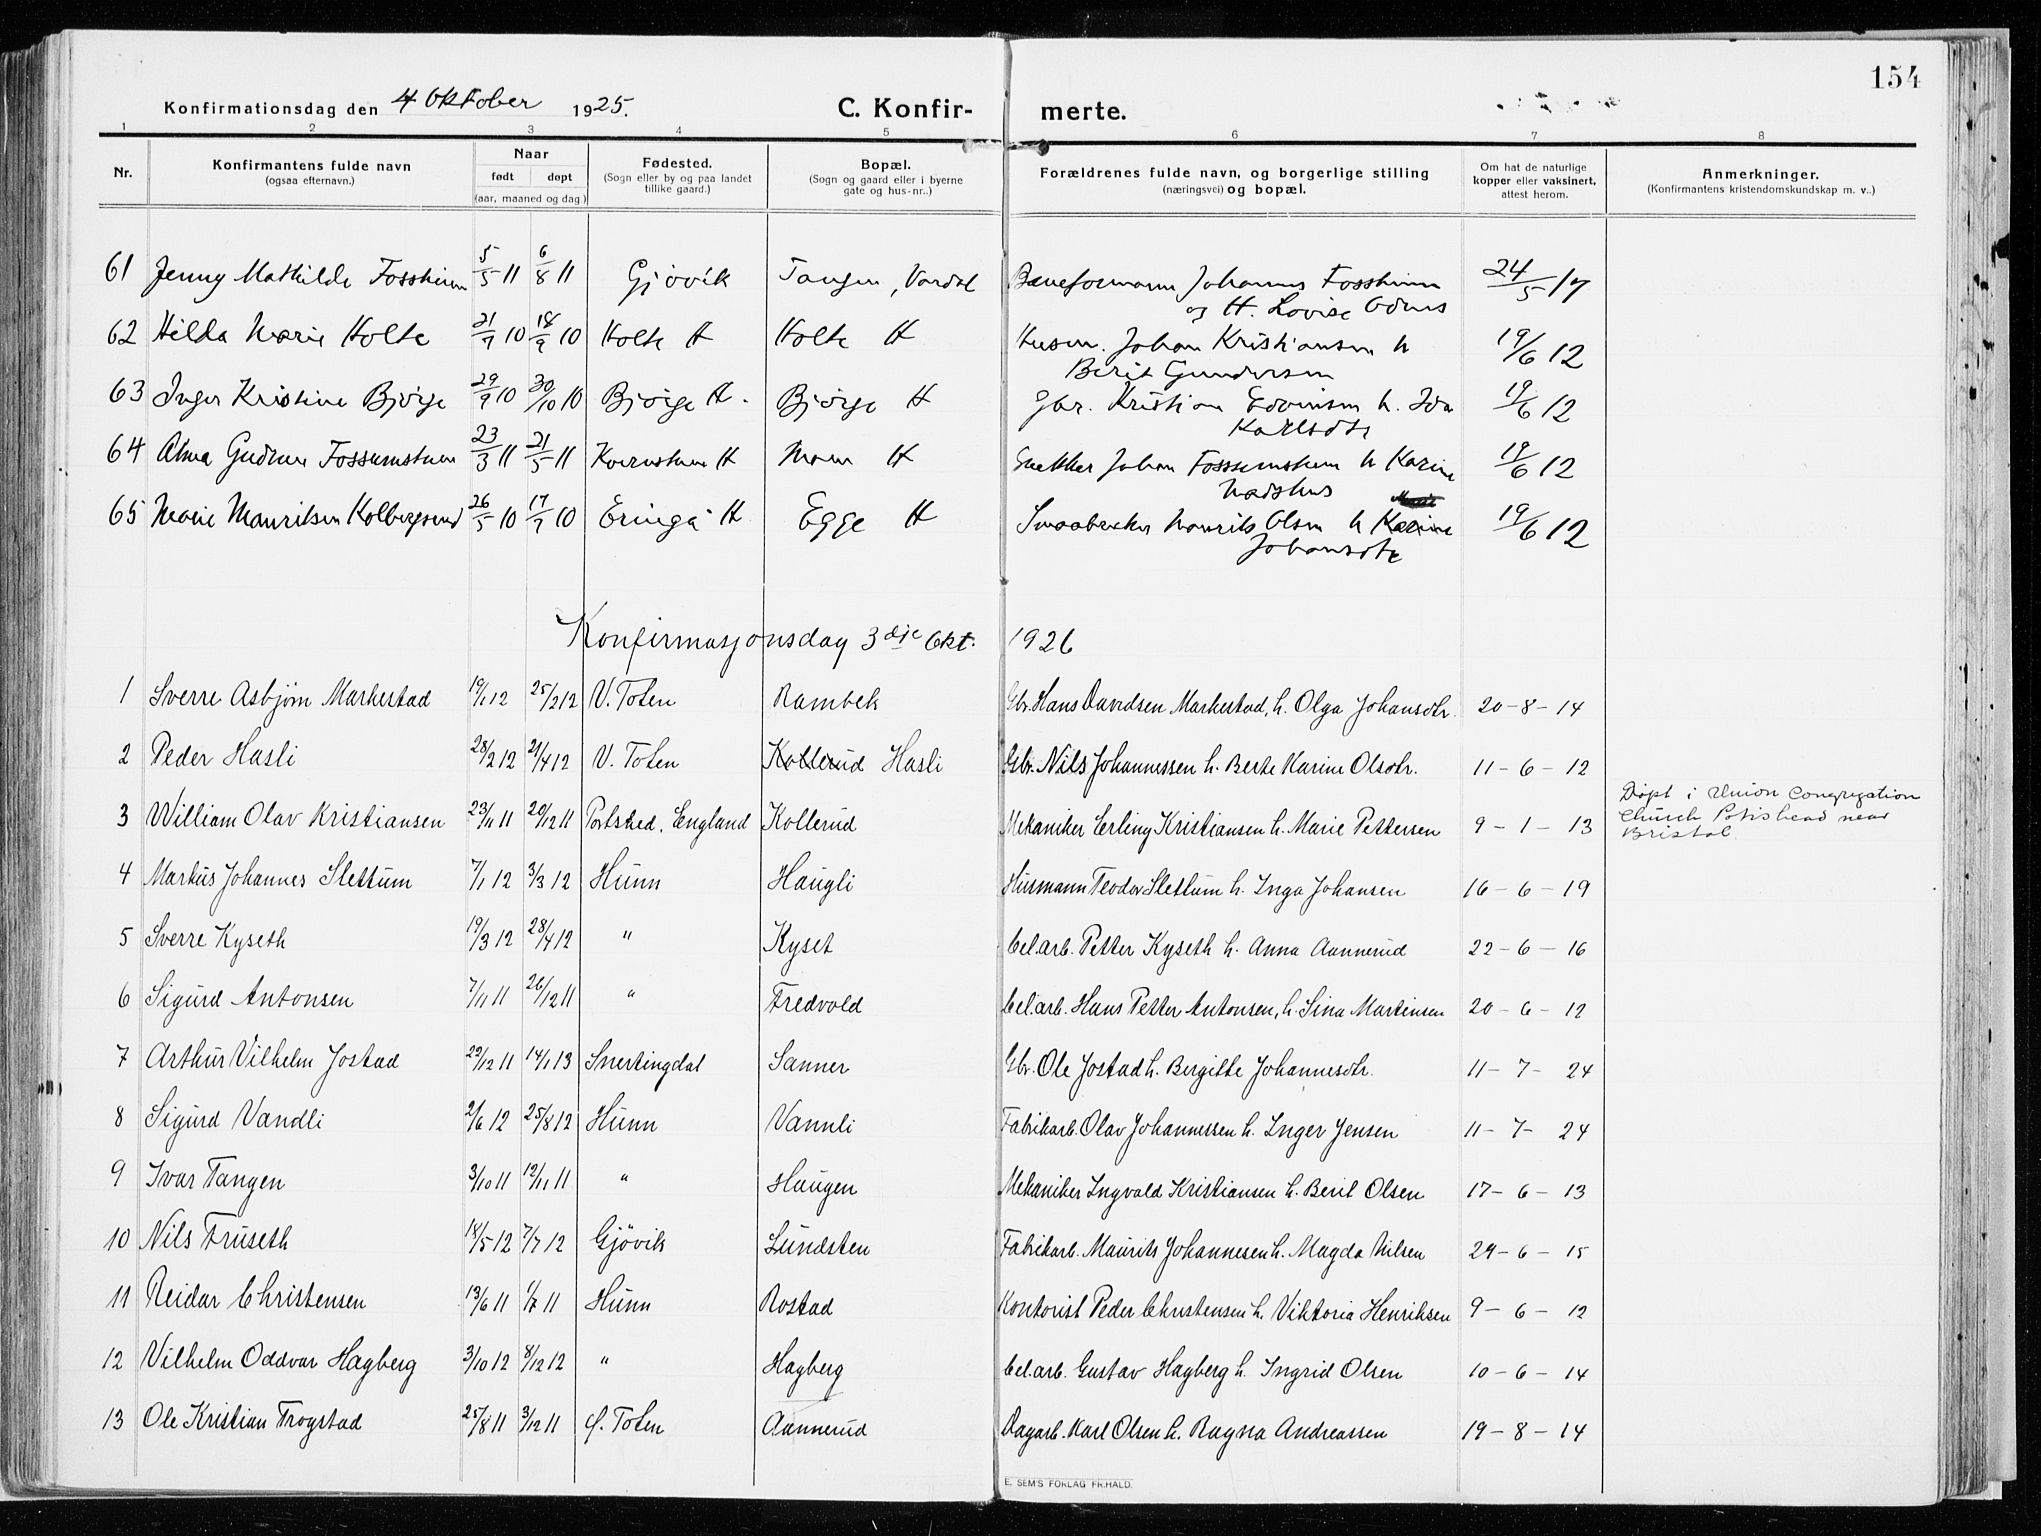 154
Konfirmationsdag den 4 Oktober 1925. C. Konfir- merte.
1 2 3 4 5 6 7 8
Nr. Konfirmantens fulde navn Naar Fødested. Bopæl. Forældrenes fulde navn, og borgerlige stilling Om hat de naturlige Anmerkninger.
(ogsaa efternavn.) født døpt (Sogn eller by og paa landet (Sogn og gaard eller i byerne (næringsvei) og bopæl. kopper eller vaksinert, (Konfirmantens kristendomskundskap m. v..)
(aar, maaned og dag) tillike gaard.) gate og hus-nr..) attest herom.
61 Jenny Mathilde Fossheim 5/5 11 6/8 11 Gjøvik Tangen, Vardal Baneformann Johannes Fossheim 24/5 17
og H. Lovise
62 Hilda Marie Holte 21/7 10 18/9 10 Holte H Holte H Husm. Johan Kristiansen h 19/6 12
Berit Gundersen
63 Inger Kristine Bjørge 29/9 10 30/10 10 Bjørge H. Bjørge H gbr. Kristian Edvinsen h. Ida 19/6 12
Karlsdtr
64 Alma Gudrun Fossumstuen 23/3 11 21/5 11 H Moen H Snekker Johan Fossumstuen h Karine 19/6 12
65 Marie Mauritsen Kolbergsrud 26/5 10 17/7 10 Eringa H Egge H Smaabruker Maurits Olsen h Karine 19/6 12
Johansdtr
Konfirmasjonsdag 3dje Okt. 1926
1 Sverre Asbjørn Markestad 19/1 12 25/2 12 V. Toten Rambek Gbr. Hans Davidsen Markestad, h. Olga Johansdtr. 20-8-14
2 Peder Hasli 28/2 12 21/4 12 V. Toten Kollerud Hasli Gbr. Nils Johannessen h. Berte Karine Olsdtr. 11-6-12
3 William Olav Kristiansen 23/11 11 20/12 11 Portshed. England Kollerud Mekaniker Erling Kristiansen h. Marie Pettersen 9-1-13 Døpt i Union Congregation
Church Potishead near
Bristol
4 Markus Johannes Slettum 7/1 12 3/3 12 Hunn Haugli Husmann Teodor Slettum h. Inga Johansen 16-6-19
5 Sverre Kyseth 19/3 12 28/4 12 " Kyset Cel.arb. Petter Kyseth h. Anna Aannerud 22-6-16
6 Sigurd Antonsen 7/11 11 26/12 11 " Fredvold Cel.arb. Hans Petter Antonsen, h. Sina Martinsen 20-6-12
7 Arthur Vilhelm Jostad 29/12 11 14/1 13 Snertingdal Sanner Gbr. Ole Jostad h. Bergitte Johannesdtr. 11-7-24
8 Sigurd Vandli 21/6 12 25/8 12 Hunn Vannli Fabrikarb. Olav Johannessen h. Inger Jensen 11-7-24
9 Ivar Tangen 3/10 11 12/11 11 " Haugen Mekaniker Ingvald Kristiansen h. Berit Olsen 17-6-13
10 Nils Fruseth 18/5 12 7/7 12 Gjövik Lundsten Fabrikarb. Maurits Johannesen h. Magda Nilsen 24-6-15
11 Reidar Christensen 13/6 11 1/7 11 Hunn Rostad Kontorist Peder Christensen h. Viktoria Henriksen 9-6-12
12 Vilhelm Oddvar Hagberg 3/10 12 8/12 12 " Hagberg Cel.arb. Gustav Hagberg h. Ingrid Olsen 10-6-14
13 Ole Kristian Trogstad 25/8 11 3/12 11 Ø. Toten Aannerud Dagarb. Karl Olsen h. Ragna Andreassen 19-8-14
E. SEM'S FORLAG FR.HALD.